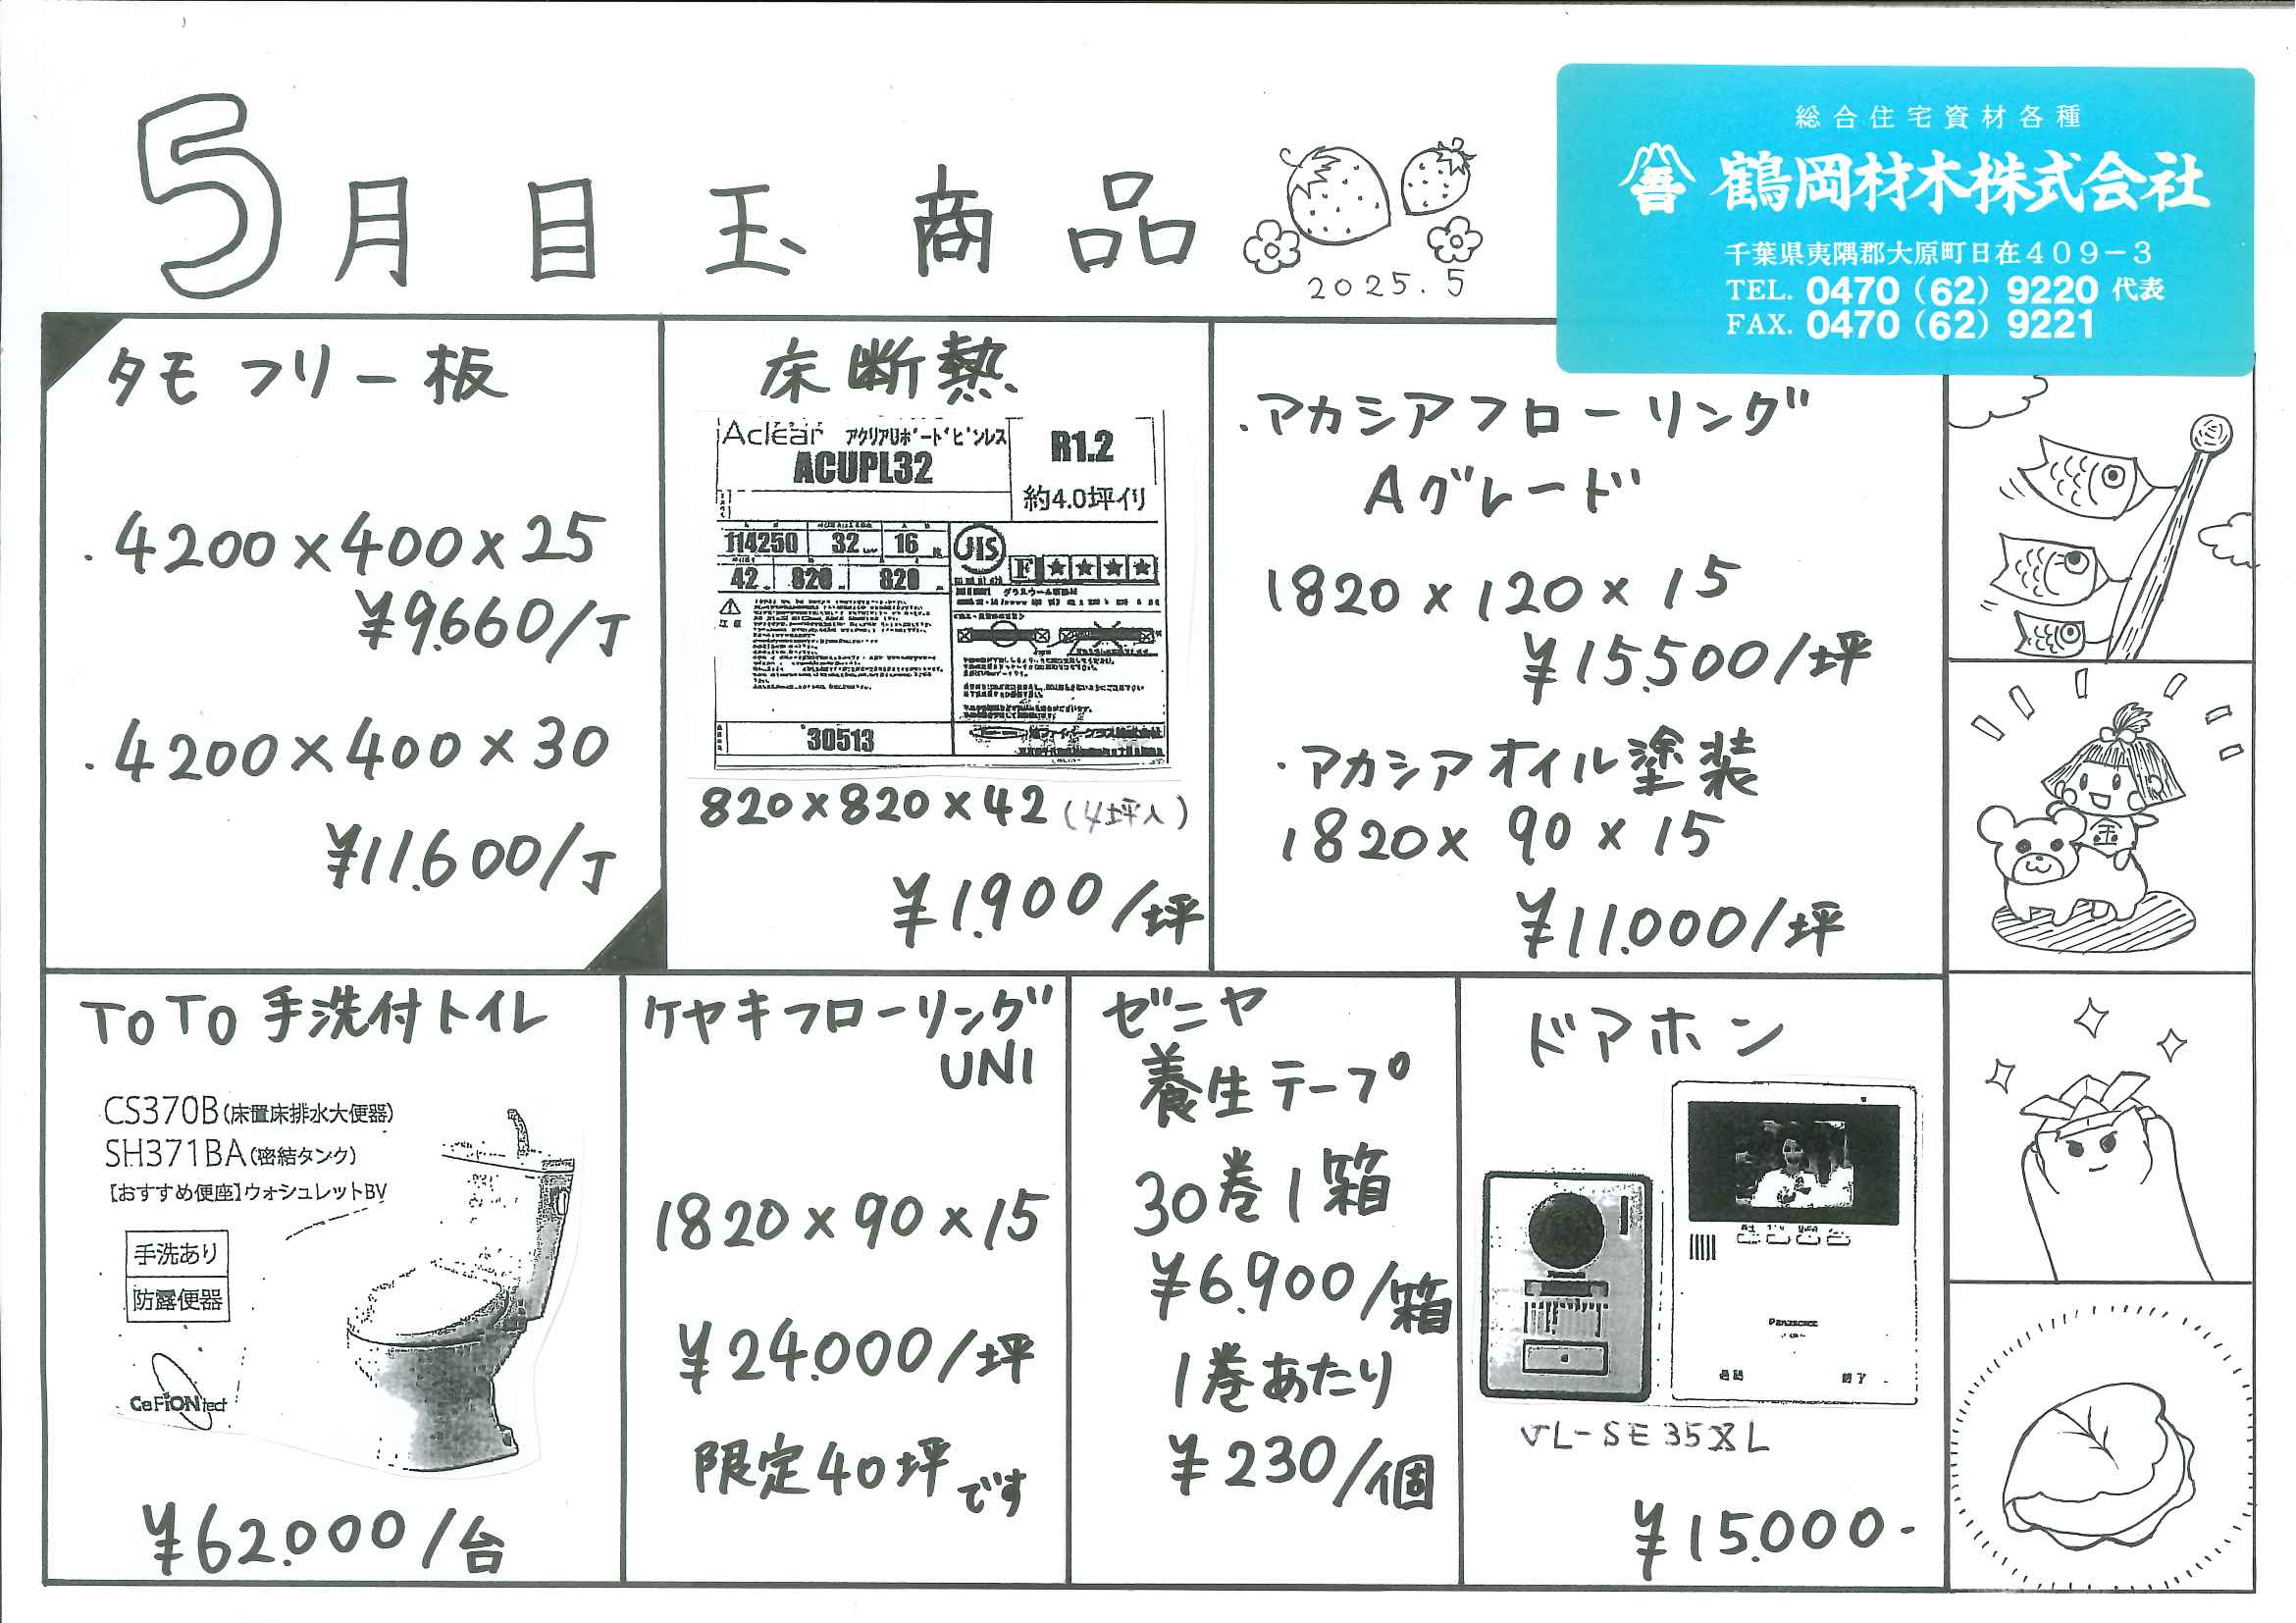 5月目玉商品
2025.5
総合住宅資材各種
鶴岡材木株式会社
千葉県夷隅郡大原町日在409-3
TEL. 0470(62)9220 代表
FAX. 0470(62)9221
タモフリー板
・4200×400×25
¥9.660/丁
・4200×400×30
¥11.600/丁
床断熱
Aclear アクリアUボードピンレス
ACUPL32
R1.2
約4.0坪イリ
114250 32 16
42 820 820
JIS
F★★★★
30513
820×820×42(4坪入)
¥1.900/坪
・アカシアフローリング
Aグレード
1820×120×15
¥15.500/坪
・アカシアオイル塗装
1820×90×15
¥11.000/坪
金
TOTO手洗付トイレ
CS370B(床置床排水大便器)
SH371BA(密結タンク)
【おすすめ便座】ウォシュレットBV
手洗あり
防露便器
CeFiONtect
¥62.000/台
ケヤキフローリング
UNI
1820×90×15
¥24.000/坪
限定40坪です
ゼニヤ
養生テープ
30巻1箱
¥6.900/箱
1巻あたり
¥230/個
ドアホン
Panasonic
終了
VL-SE35XL
¥15.000-